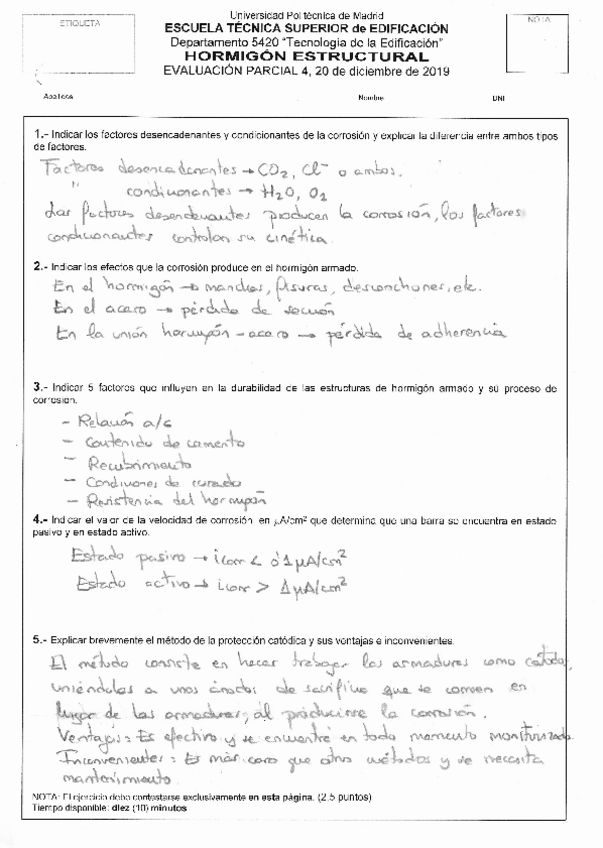 ETIQUETA
Universidad Politécnica de Madrid
NOTA
ESCUELA TÉCNICA SUPERIOR de EDIFICACIÓN
Departamento 5420 "Tecnología de la Edificación"
HORMIGÓN ESTRUCTURAL
EVALUACIÓN PARCIAL 4, 20 de diciembre de 2019
Apellidos Nombre DNI
1.- Indicar los factores desencadenantes y condicionantes de la corrosión y explicar la diferencia entre ambos tipos
de factores.
Factores desencadenantes → CO2, Cl- o ambos.
" condicionantes → H2O, O2
Los factores desencadenantes producen la corrosión, los factores
condicionantes controlan su cinética.
2.- Indicar los efectos que la corrosión produce en el hormigón armado.
En el hormigón → manchas, fisuras, desconchones, etc.
En el acero → pérdida de sección
En la unión hormigón - acero → pérdida de adherencia
3.- Indicar 5 factores que influyen en la durabilidad de las estructuras de hormigón armado y su proceso de
corrosión.
- Relación a/c
- Contenido de cemento
- Recubrimiento
- Condiciones de curado
- Resistencia del hormigón
4.- Indicar el valor de la velocidad de corrosión en µA/cm2 que determina que una barra se encuentra en estado
pasivo y en estado activo.
Estado pasivo → icorr < 0'1 µA/cm2
Estado activo → icorr > 1 µA/cm2
5.- Explicar brevemente el método de la protección catódica y sus ventajas e inconvenientes.
El método consiste en hacer trabajar las armaduras como cátodo,
uniéndolas a unos ánodos de sacrificio que se corroen en
lugar de las armaduras, al producirse la corrosión.
Ventajas: Es efectivo y se encuentra en todo momento monitorizado
Inconvenientes: Es más caro que otros métodos y se necesita
mantenimiento
NOTA: El ejercicio debe contestarse exclusivamente en esta página. (2,5 puntos)
Tiempo disponible: diez (10) minutos